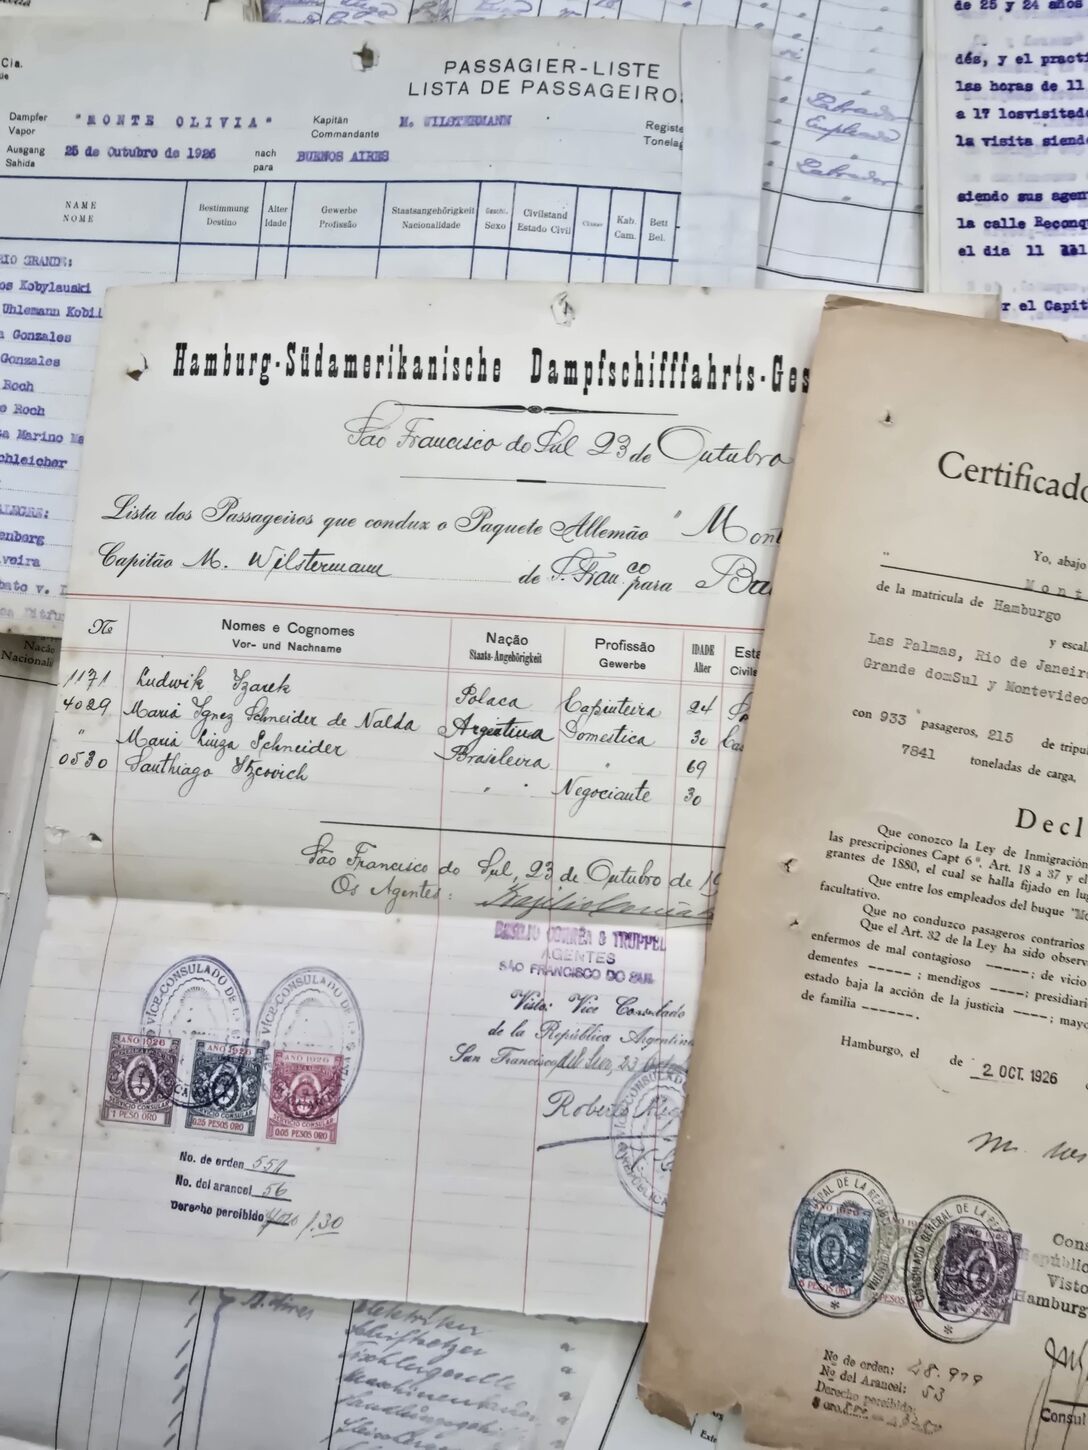 Cia.
PASSAGIER-LISTE
LISTA DE PASSAGEIRO
Dampfer
Vapor
"MONTE OLIVIA"
Kapitän
Commandante
M. WILSTERMANN
Registe
Tonelag
Ausgang
Sahida
25 de Outubro de 1926
nach
para
BUENOS AIRES
NAME
NOME
Bestimmung
Destino
Alter
Idade
Gewerbe
Profissão
Staatsangehörigkeit
Nacionalidade
Geschl.
Sexo
Civilstand
Estado Civil
Classe
Kab.
Cam.
Bett
Bel.
IO GRANDE:
os Kobylauski
Uhlemann Kobil
a Gonzales
Gonzales
Roch
o Roch
sa Marino Ma
chleicher
ALEGRE:
enberg
veira
bato v.
Nação
Nacionali
Labrador
Empleado
Labrador
de 25 y 24 años
dés, y el practi
las horas de 11
a 17 losvisitado
la visita siend
siendo sus agen
la calle Reconq
el dia 11
r el Capit
Hamburg-Südamerikanische Dampfschifffahrts-Ges
São Francisco do Sul 23 de Outubro
Lista dos Passageiros que conduz o Paquete Allemão " Mont
Capitão M. Wilstermann de S. Fran.co para Bu
Nº
Nomes e Cognomes
Vor- und Nachname
Nação
Staats-Angehörigkeit
Profissão
Gewerbe
IDADE
Alter
Esta
Civils
1171 Ludwik Szarek Polaca Capinteira 24
4029 Maria Ignez Schneider de Nalda Argentina Domestica 30 Ca
" Maria Luiza Schneider Brasileira " 69
0530 Santhiago Itzcovich " " Negociante 30
São Francisco do Sul, 23 de Outubro de 19
Os Agentes:
BASILIO CORRÊA & TRUPPEL
AGENTES
SÃO FRANCISCO DO SUL
Visto: Vice Consulado
de la República Argentina
San Francisco del Sur, 23
Roberto
VICE-CONSULADO DE LA
VICE-CONSULADO DE LA
AÑO 1926
SERVICIO CONSULAR
1 PESO ORO
AÑO 1926
SERVICIO CONSULAR
0.25 PESOS ORO
AÑO 1926
SERVICIO CONSULAR
0.05 PESOS ORO
No. de orden 551
No. del arancel 56
Derecho percibido $oro 1.30
Certificado
Yo, abajo
"
Mont
de la matricula de Hamburgo
y escala
Las Palmas, Rio de Janeiro
Grande domSul y Montevideo
con 933 pasageros, 215 de tripu
7841 toneladas de carga,
Decl
Que conozco la Ley de Inmigración
las prescripciones Capt 6º. Art. 18 a 37 y el
grantes de 1880, el cual se halla fijado en lug
Que entre los empleados del buque "Mo
facultativo.
Que no conduzco pasageros contrarios
Que el Art. 32 de la Ley ha sido observ
enfermos de mal contagioso -----; de vicio
dementes -----; mendigos ----; presidiario
estado baja la acción de la justicia ----; mayo
de familia ------.
Hamburgo, el de 2 OCT. 1926
CONSULADO GENERAL DE LA REPUBLICA
CONSULADO GENERAL DE LA REP
AÑO 1926
5 PESOS ORO
Cons
República
Visto
Hamburg
Consul
Nº de orden: 48.979
Nº del Arancel: 53
Derecho percibido:
B. Aires
Elektriker
Schiffsheizer
Tischlergeselle